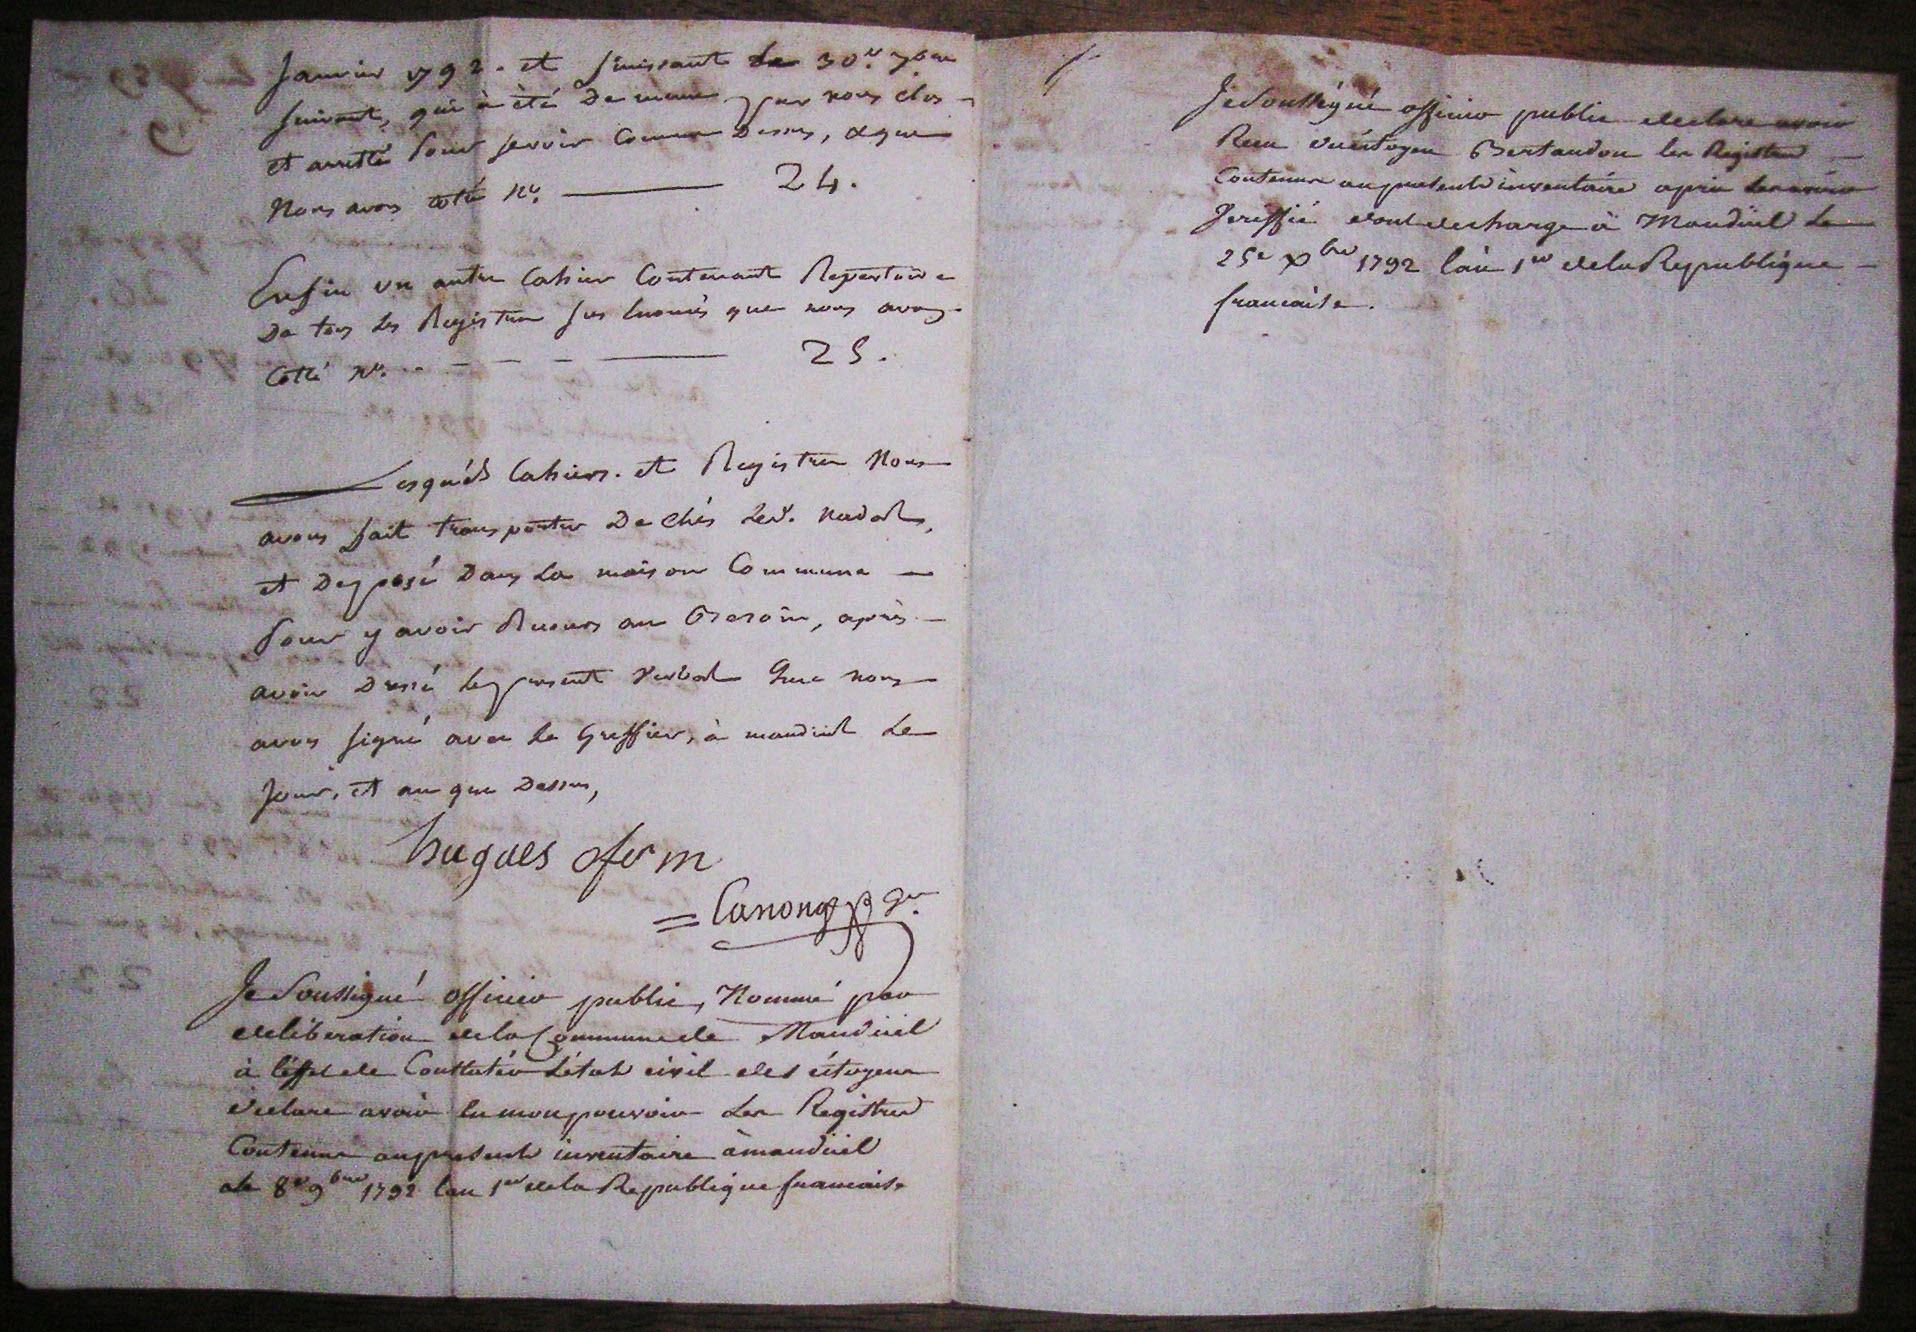 Janvier 1792. et finissant le 30.e 7bre
suivant, qui à été de meme par nous clos
et arretté pour servir comme Dessus, & que
Nous avons cotté N.o 24.
Enfin un autre Cahier Contenant Repertoire
De tous les Registres sus Enoncés que nous avons
Cotté N.o 25.
Lesquels Cahiers. et Registres Nous
avons fait transporter De chés led. nadal,
et Deposé Dans La maison Commune
Pour y avoir Recours au Besoin, après
avoir Dressé le present verbal Que nous
avons signé avec le Greffier, à manduel Le
Jour, et an que Dessus,
hugues ofer m
Canonge ger.
Je Soussigné officier public, Nommé par
deliberation de la Commune de Manduel
à l'effet de Constater L'état civil des citoyens
declare avoir en mon pouvoir Les Registres
Contenus au present inventaire à manduel
le 8e 9bre 1792 l'an 1er de la Republique francaise
Je Soussigné officier public declare avoir
Reçu du citoyen Bertaudon les Registres
Contenus au present inventaire après les avoir
Verifié dont decharge à Manduel Le
25e Xbre 1792 l'an 1er de la Republique
francaise.